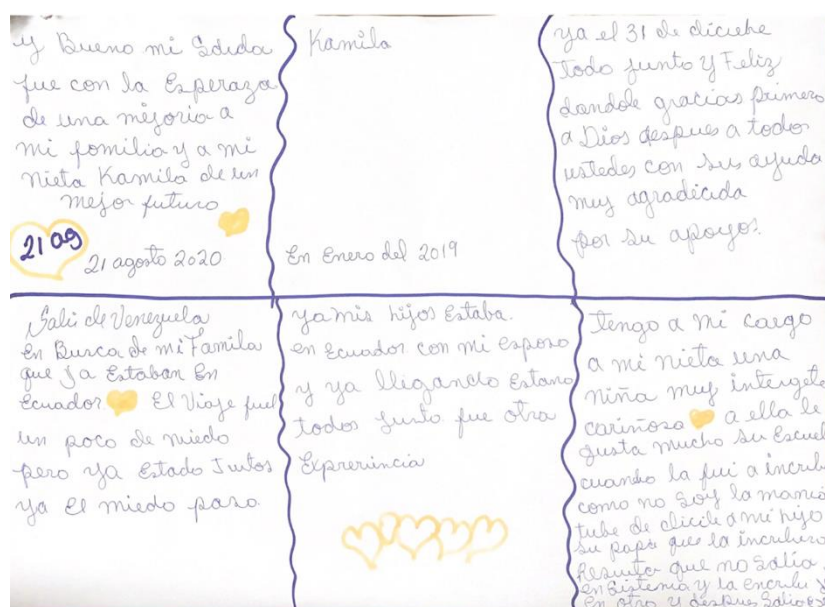 y Bueno mi Salida
fue con la Esperaza
de una mejoria a
mi familia y a mi
nieta Kamila de un
mejor futuro
21 ag
21 agosto 2020
Kamila
En Enero del 2019
ya el 31 de diciebe
todo junto y Feliz
dandole gracias primero
a Dios despues a todos
ustedes con su ayuda
muy agradicida
por su apoyo.
Sali de Venezuela
en Busca de mi Famila
que ya Estaban En
Ecuador El Viaje fue
un poco de miedo
pero ya Estado Juntos
ya El miedo paso
ya mis hijos Estaba.
en Ecuador con mi esposo
y ya lligando Estano
todos junto fue otra
Exprerincia
tengo a mi cargo
a mi nieta una
niña muy intergete
cariñosa a ella le
gusta mucho su Escuel
cuando la fui a incribi
como no soy la mamá
tube de dicile a mi hijo
su papá que la
Resulta que no salia
en Sistema y la
En otra y despues Salio